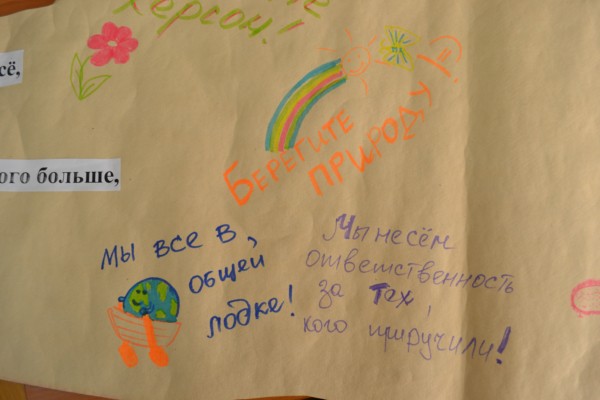 Херсон!
сё,
БЕРЕГИТЕ
ПРИРОДУ!
ого больше,
Мы все в
общей
лодке!
Мы несём
ответственность
за тех,
кого приручили!